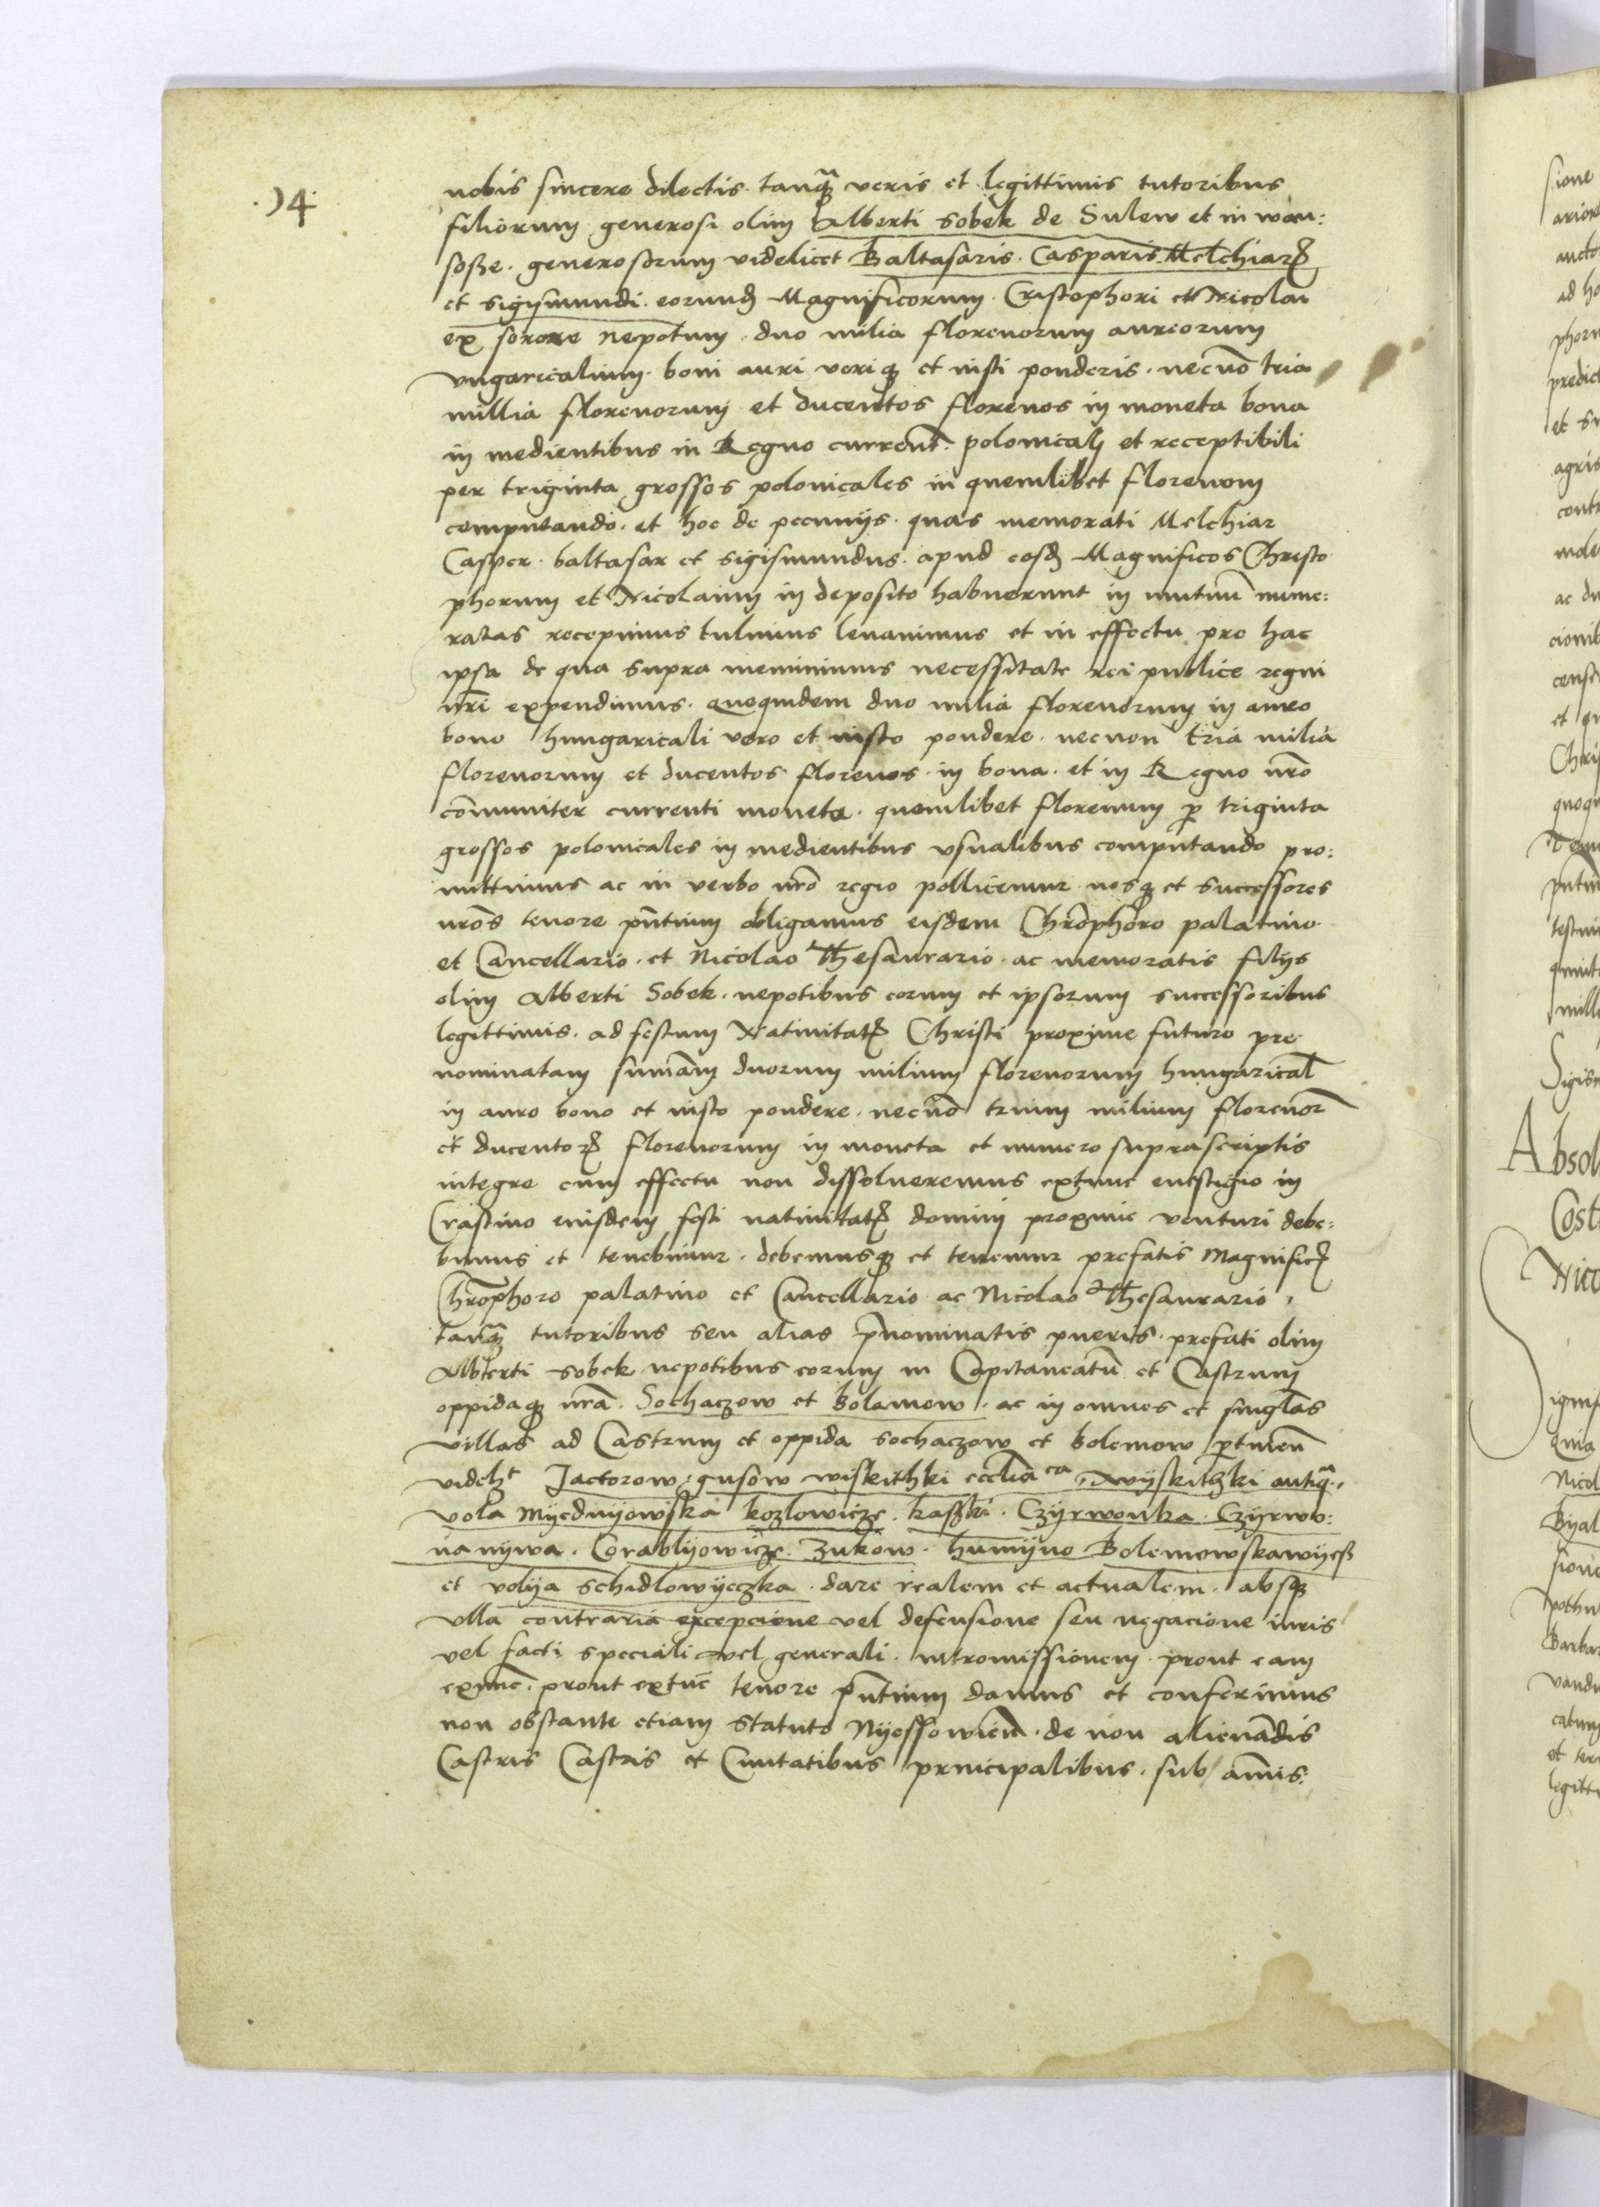 .94.
nobis sincere dilectis. tanq̃ veris et legittimis tutoribus
filiorum generosi olim Alberti sobek de Sulew et in
soße. generosorum videlicet Baltasaris. Casparis Melchiarꝝ
et sigismundi. eorunđ Magnificorum. Cristophori et Nicolai
ex sorore nepotum. duo milia florenorum aureorum
vngaricalium. boni auri veriqꝫ et iusti ponderis. necnō tria
millia florenorum et ducentos florenos in moneta bona
in medientibus in Regno current̃. polonicalj et receptibili
per triginta grossos polonicales in quemlibet florenum
computando. et hoc de pecunijs. quas memorati Melchiar
Casper. baltasar et sigismundus. apud eosđ Magnificos Christo
phorum et Nicolaum in deposito habuerunt in mutuū nume:
ratas recepimus tulimus leuauimus et in effectu pro hac
ipsa de qua supra meminimus necessitate rei publice regni
nr̃i expendimus. quequidem duo milia florenorum in auro
bono hungaricali vero et iusto pondere. necnon tria milia
florenorum et ducentos florenos in bona. et in Regno nr̃o
cōmuniter currenti moneta. quemlibet florenum ꝑ triginta
grossos polonicales in medientibus vsualibus computando pro:
mittimus ac in verbo nr̃o regio pollicemur nosqꝫ et successores
nr̃os tenore pñtium obligamus eisdem Chrōphoro palatino
et Cancellario. et Nicolao Thesaurario. ac memoratis filijs
olim Alberti Sobek. nepotibus eorum et ipsorum successoribus
legittimis. ad festum Natiuitatꝭ Christi proxime futuro pre
nominatam sum̃am duorum milium florenorum hungarical̃
in auro bono et iusto pondere. necnō trium milium florenor̃
et ducentoꝝ florenorum in moneta et numero suprascriptis
integre cum effectu non dissolueremus extunc euestigio in
Crastino eiusdem festi natiuitatꝭ domini proxime venturi debe:
bimus et tenebimur. debemusqꝫ et tenemur prefatis Magnificꝭ
Chrōphoro palatino et Cancellario ac Nicolao Thesaurario,
tanq̃ tutoribus seu alias p̃nominatis pueris. prefati olim
Alberti sobek nepotibus eorum in Capitaneatū et Castrum
oppidaqꝫ nr̃a. Sochaczow et bolamow. ac in omnes et singlas
villas ad Castrum et oppida sochaczow et bolemow ꝑtineñ
videlꝫt Jactorow: gusow wiskithki eccl̃ia ca, wyskithki antiq̃.,
vola Myednyowska kozlowicze. kasski. Czyrwonka. Czyrwo:
na nywa. Corablyowicze. zukow. humyno Bolemowskawyeß
et volya schidlowyeczka. dare realem et actualem. absqꝫ
vlla contraria excepcione vel defensione seu negacione iuris
vel facti speciali vel generali. intromissionem. prout eam
exnunc. prout extūc tenore pñtium damus et conferimus
non obstante etiam statuto Nyessowieñ. de non alienādis
Castris Castris et Ciuitatibus principalibus. sub añis: